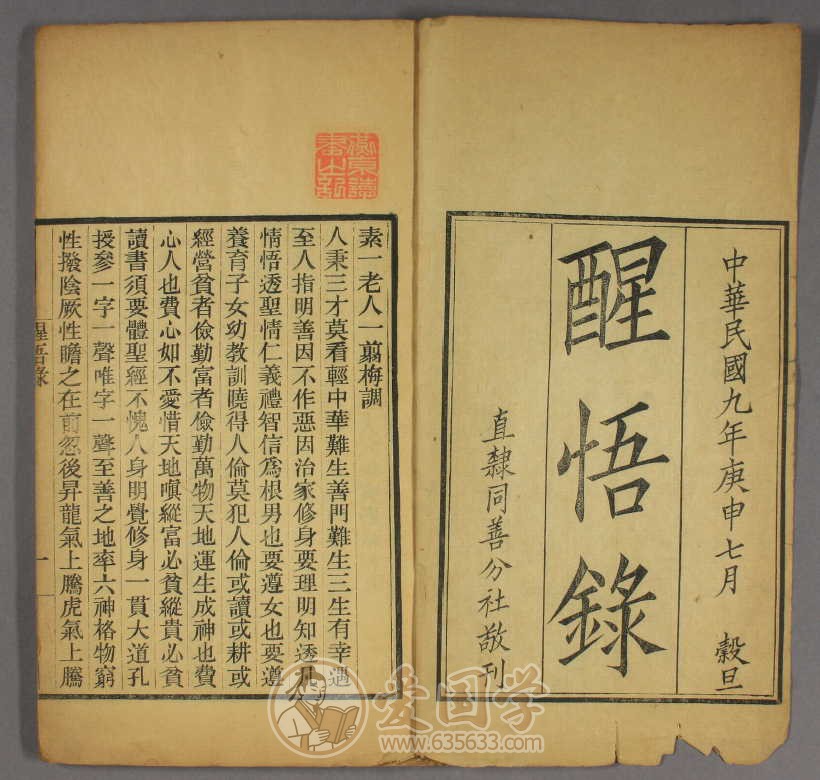 中華民國九年庚申七月　穀旦
醒悟錄
直隸同善分社敬刊
素一老人一翦梅調
人秉三才莫看輕中華難生善門難生三生有幸遇
至人指明善因不作惡因治家修身要理明知透凡
情悟透聖情仁義禮智信爲根男也要遵女也要遵
養育子女幼教訓曉得人倫莫犯人倫或讀或耕或
經營貧者儉勤富者儉勤萬物天地運生成神也費
心人也費心如不愛惜天地嗔縱富必貧縱貴必貧
讀書須要體聖經不愧人身明覺修身一貫大道孔
授參一字一聲唯字一聲至善之地率六神格物窮
性撥陰厥性瞻之在前忽後昇龍氣上騰虎氣上騰
醒悟錄
一
爱国学
www.635633.com